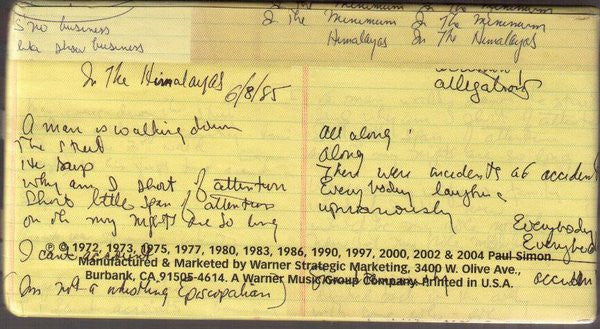 S no business
like show business
In The Minimum In The Minimum
Himalayas In The Himalayas
In The Himalayas 6/8/85
A man is walking down
The street
He says
Why am I short of attention
Short little span of attention
on oh my nights are so long
I can't
(Im not a whistling Episcopalian)
allegations
all along
along
There were incidents at accident
Everybody laughing
uproariously
Everybody
Everybod
accident
℗ © 1972, 1973, 1975, 1977, 1980, 1983, 1986, 1990, 1997, 2000, 2002 & 2004 Paul Simon.
Manufactured & Marketed by Warner Strategic Marketing, 3400 W. Olive Ave.,
Burbank, CA 91505-4614. A Warner Music Group Company. Printed in U.S.A.